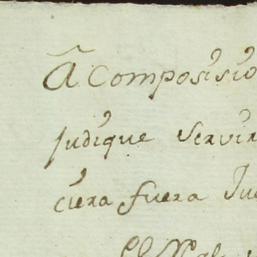 A Composisio
judique servir
ciera fuera Ju